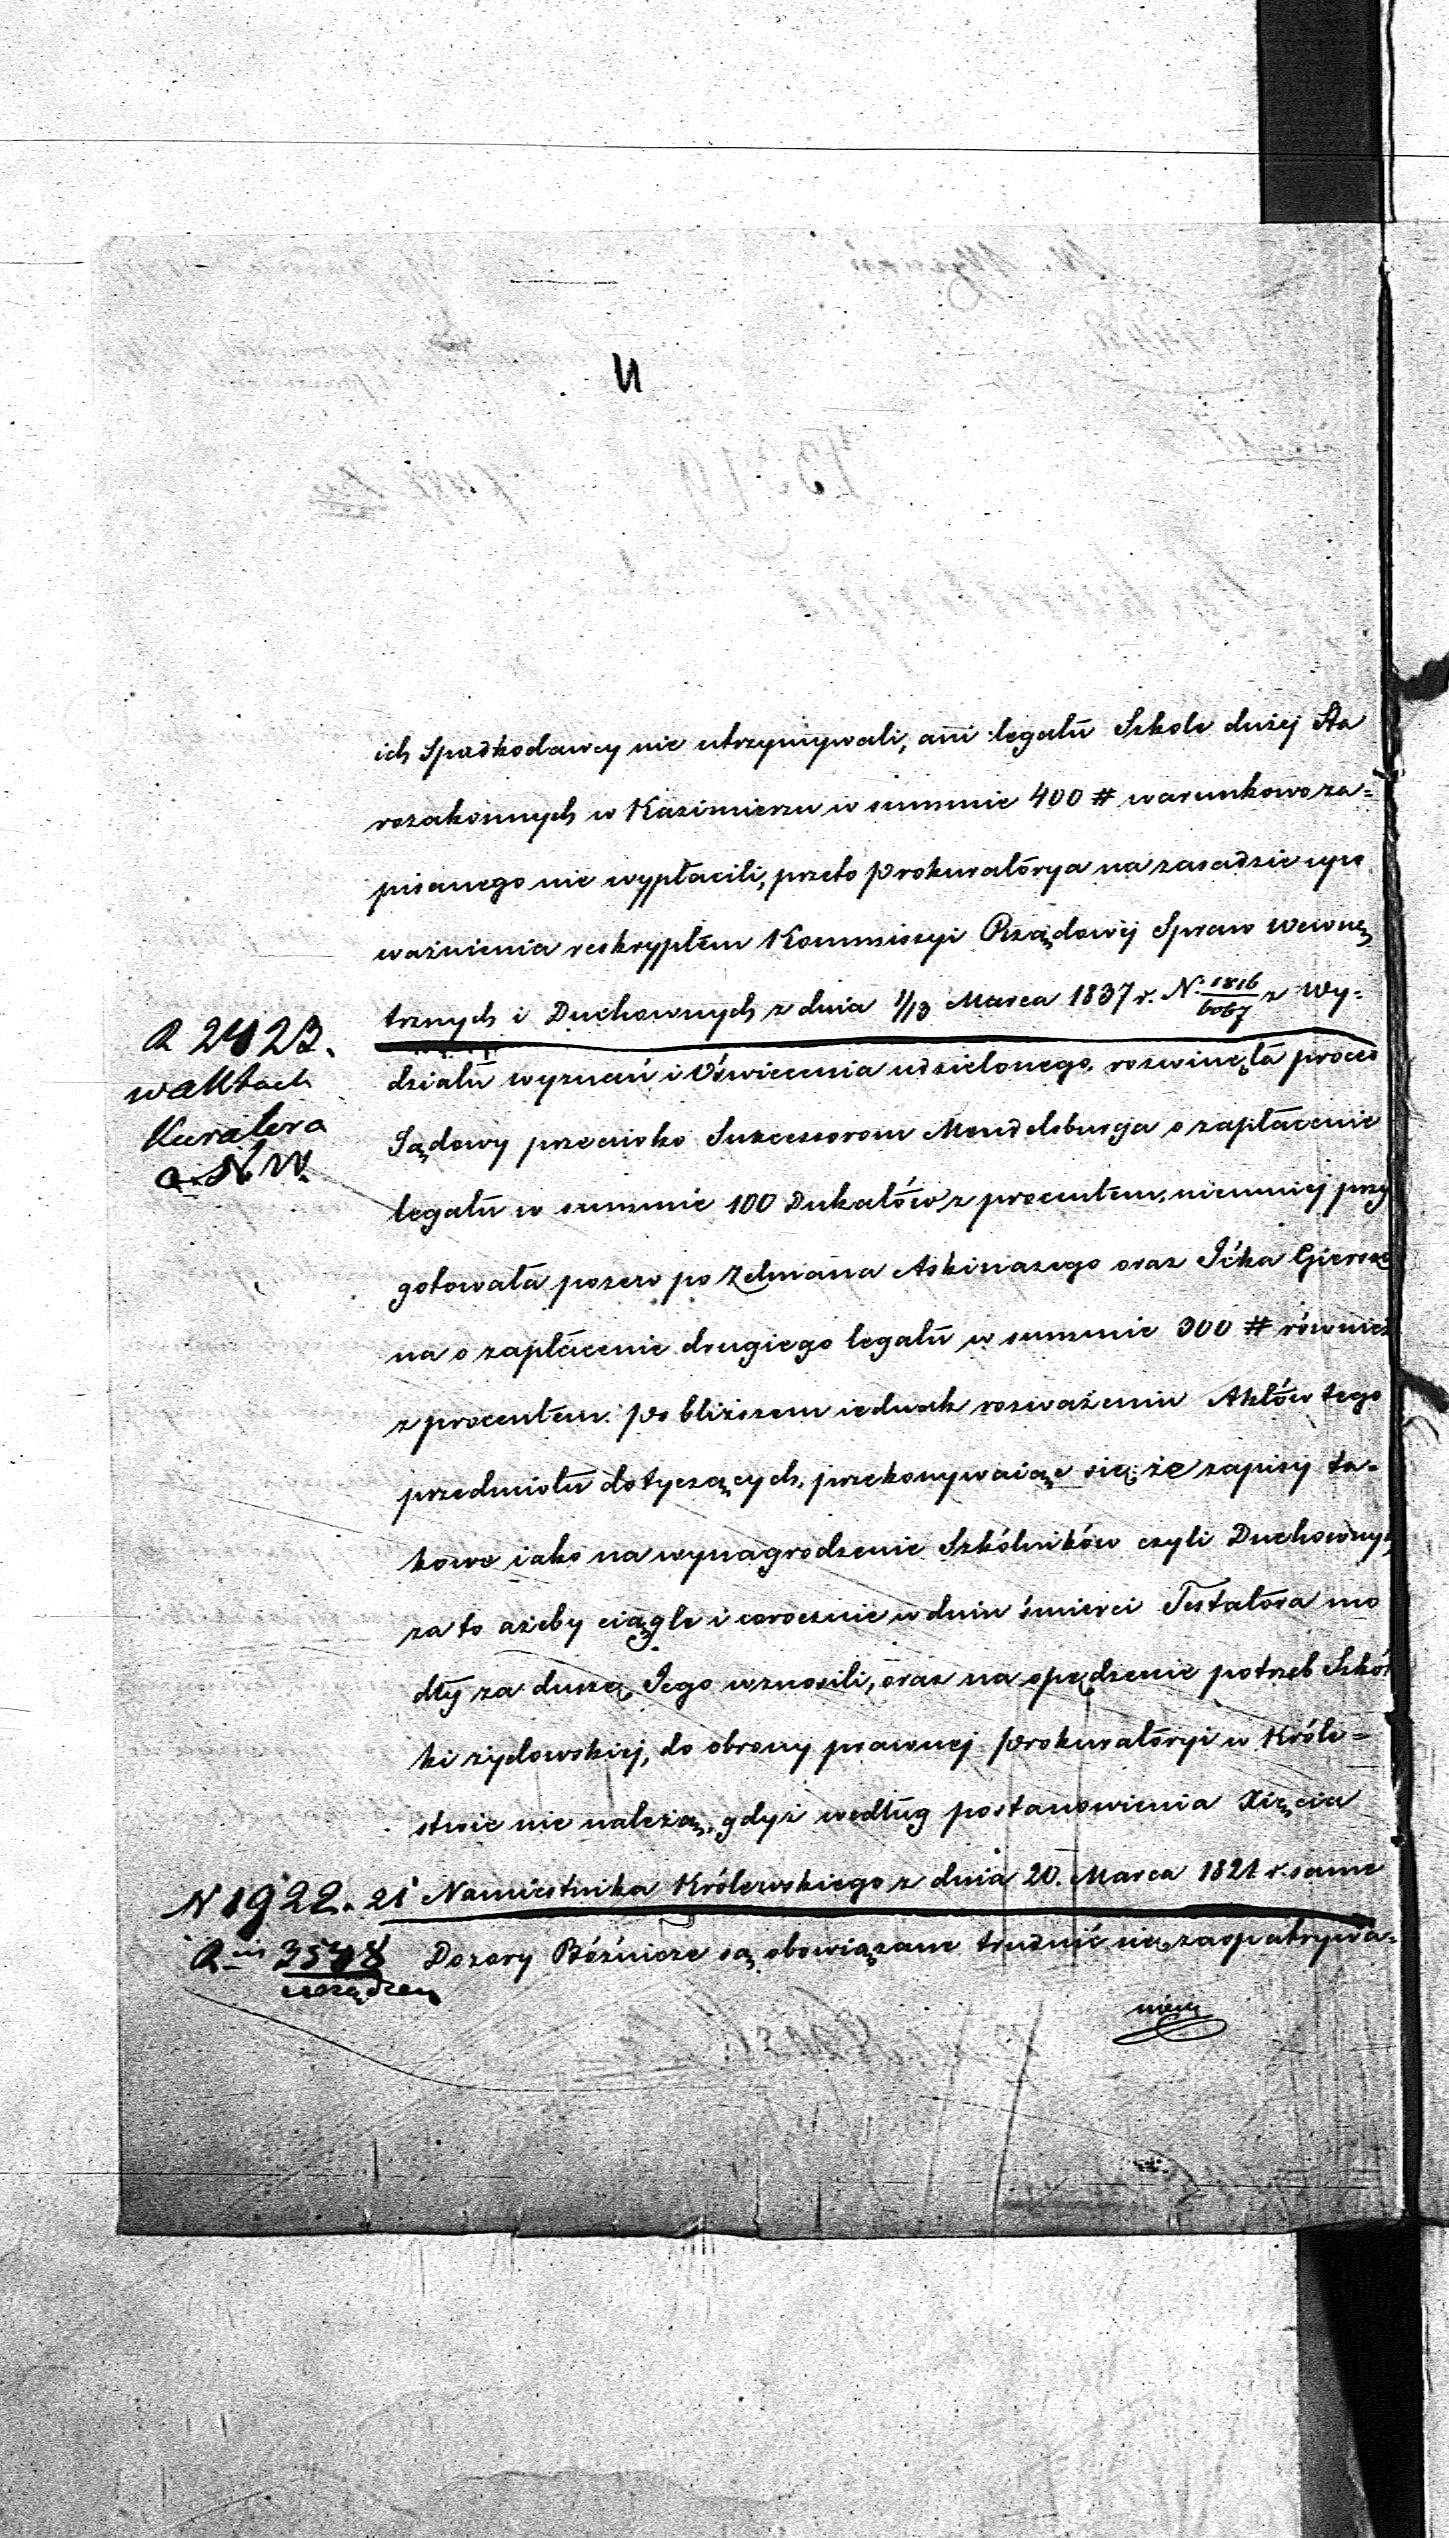 ich Spadkodawcy nie utrzymywali, ani legatu Szkole dużej Sta
rozakonnych w Kazimierzu w summie 400 # warunkowo za=
pisanego nie wypłacili, przeto Prokuratorya na zasadzie upo
ważnienia reskryptem Kommissyi Rządowej Spraw Wewnę
trznych i Duchownych z dnia 1/13 Marca 1837 r. N. 1816/6067 z Wy=
działu wyznań i Oświecenia udzielonego, rozwinęła proces
Sądowy przeciwko Sukcessorom Mendelsburga o zapłacenie
legatu w summie 100 Dukatów z procentem, niemniej przy
gotowała pozew po Zelmana Askinazego oraz Icka Giersz
na o zapłacenie drugiego legatu w summie 300 # również
z procentem. Po bliższem iednak rozważeniu Aktów tego
przedmiotu dotyczących, przekonywaiąc się, że zapisy ta=
kowe iako na wynagrodzenie Szkólników czyli Duchownych
za to ażeby ciągle i corocznie w dniu śmierci Testatora mo
dły za duszę Jego wznosili, oraz na opędzenie potrzeb Szkół
ki żydowskiej, do obrony prawnej Prokuratoryi w Króle=
stwie nie należą, gdyż według postanowienia Xięcia
Namiestnika Królewskiego z dnia 20. Marca 1821 r. same
Dozory Bóżnicze są obowiązane trudnić się zaopatrywa=
niem
R 2423.
w aktach
Kuratora
N 1922. 21
3548
urządzen